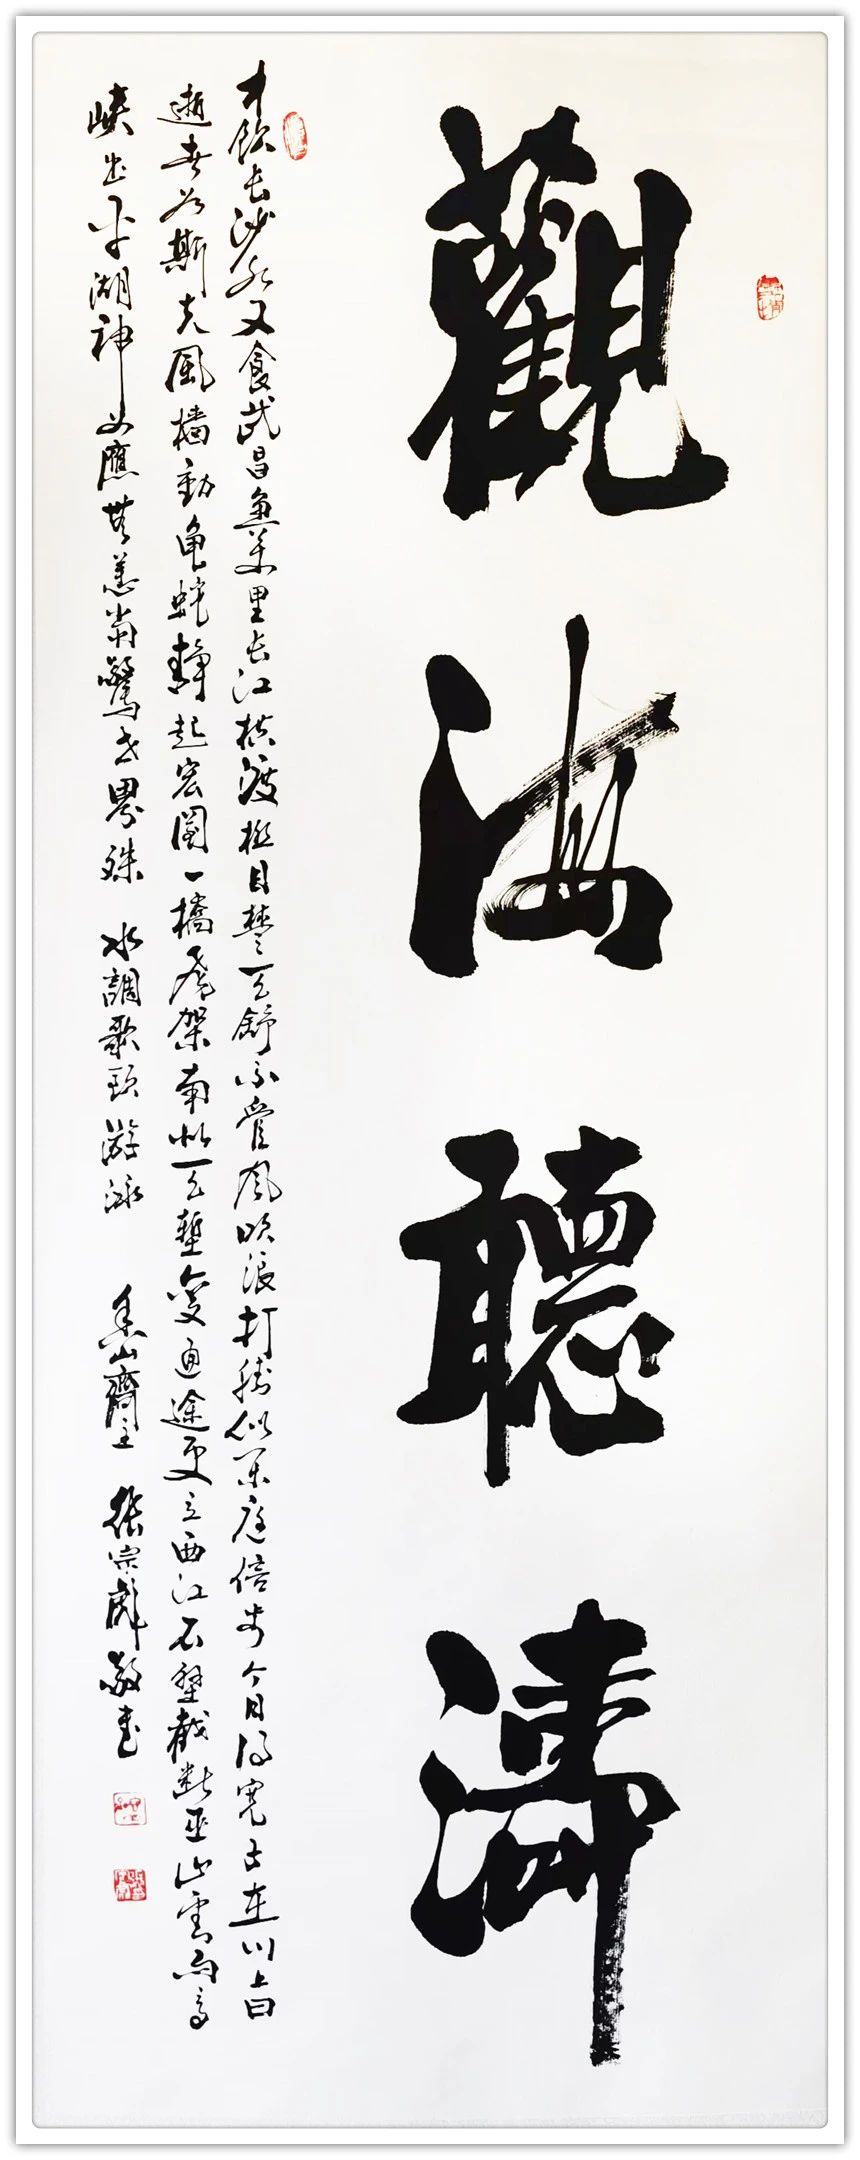 觀海聽濤
才飲長沙水又食武昌魚萬里長江橫渡極目楚天舒不管風吹浪打勝似閑庭信步今日得寬子在川上曰
逝者如斯夫風檣動龜蛇靜起宏圖一橋飛架南北天塹變通途更立西江石壁截斷巫山雲雨高
峽出平湖神女應無恙當驚世界殊 水調歌頭 游泳 山齋主 張宗彪敬書